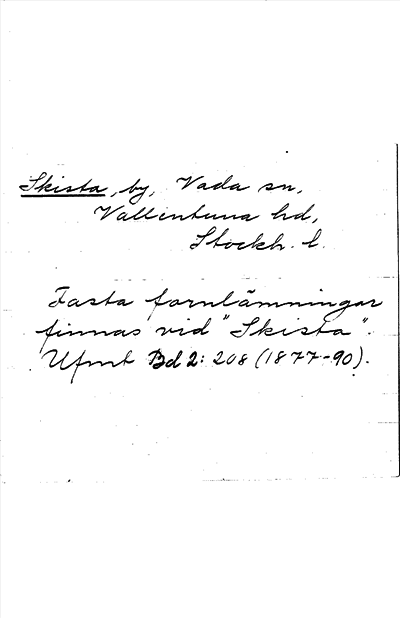 Skista, by, Vada sn,
Vallentuna hd,
Stockh. l.
Fasta fornlämningar
finnas vid "Skista".
Ufmt Bd 2: 208 (1877-90).